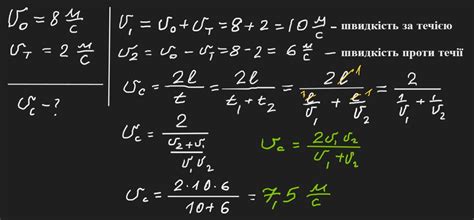 υ₀ = 8 м/с
υ_т = 2 м/с
υ_c - ?
υ₁ = υ₀ + υ_т = 8 + 2 = 10 м/с – швидкість за течією
υ₂ = υ₀ - υ_т = 8 - 2 = 6 м/с – швидкість проти течії
υ_c = 2l/t = 2l/(t₁ + t₂) = 2l¹/(l¹/υ₁ + l¹/υ₂) = 2/(1/υ₁ + 1/υ₂)
υ_c = 2/((υ₂ + υ₁)/(υ₁υ₂)) υ_c = 2υ₁υ₂/(υ₁ + υ₂)
υ_c = (2·10·6)/(10 + 6) = 7,5 м/с